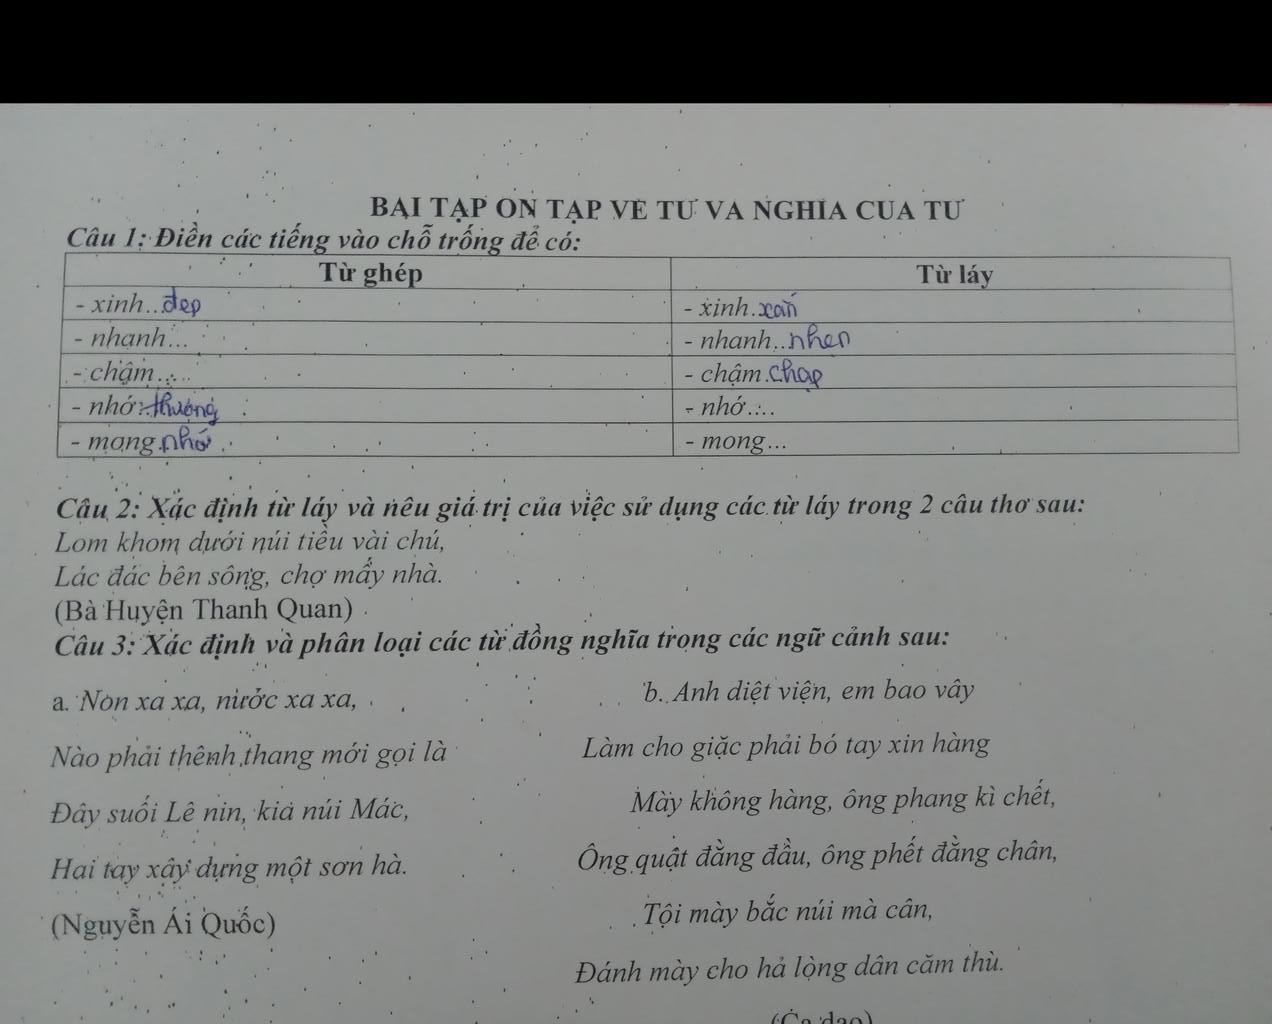 BÀI TẬP ÔN TẬP VỀ TỪ VÀ NGHĨA CỦA TỪ
Câu 1: Điền các tiếng vào chỗ trống để có:
Từ ghép Từ láy
- xinh..đẹp - xinh.xắn
- nhanh... - nhanh..nhẹn
- chậm... - chậm.chạp
- nhớ.thương - nhớ....
- mong.nhớ. - mong...
Câu 2: Xác định từ láy và nêu giá trị của việc sử dụng các từ láy trong 2 câu thơ sau:
Lom khom dưới núi tiều vài chú,
Lác đác bên sông, chợ mấy nhà.
(Bà Huyện Thanh Quan)
Câu 3: Xác định và phân loại các từ đồng nghĩa trong các ngữ cảnh sau:
a. Non xa xa, nước xa xa,
Nào phải thênh thang mới gọi là
Đây suối Lê nin, kia núi Mác,
Hai tay xây dựng một sơn hà.
(Nguyễn Ái Quốc)
b. Anh diệt viện, em bao vây
Làm cho giặc phải bó tay xin hàng
Mày không hàng, ông phang kì chết,
Ông quật đằng đầu, ông phết đằng chân,
Tội mày bắc núi mà cân,
Đánh mày cho hả lòng dân căm thù.
(Ca dao)